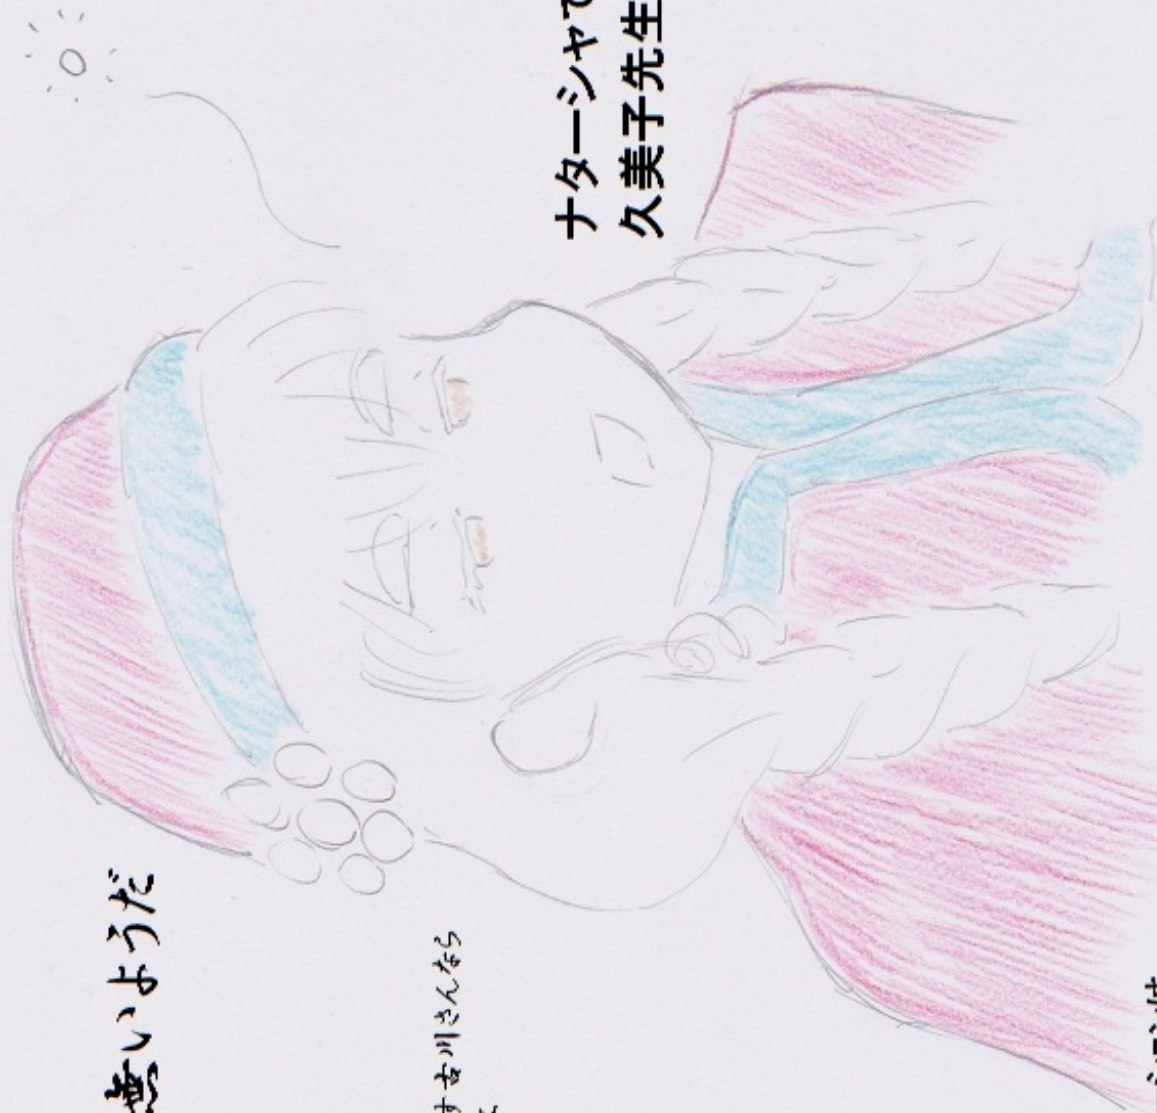 無いようだ
す古川さんなら
ナターシャで
久美子先生